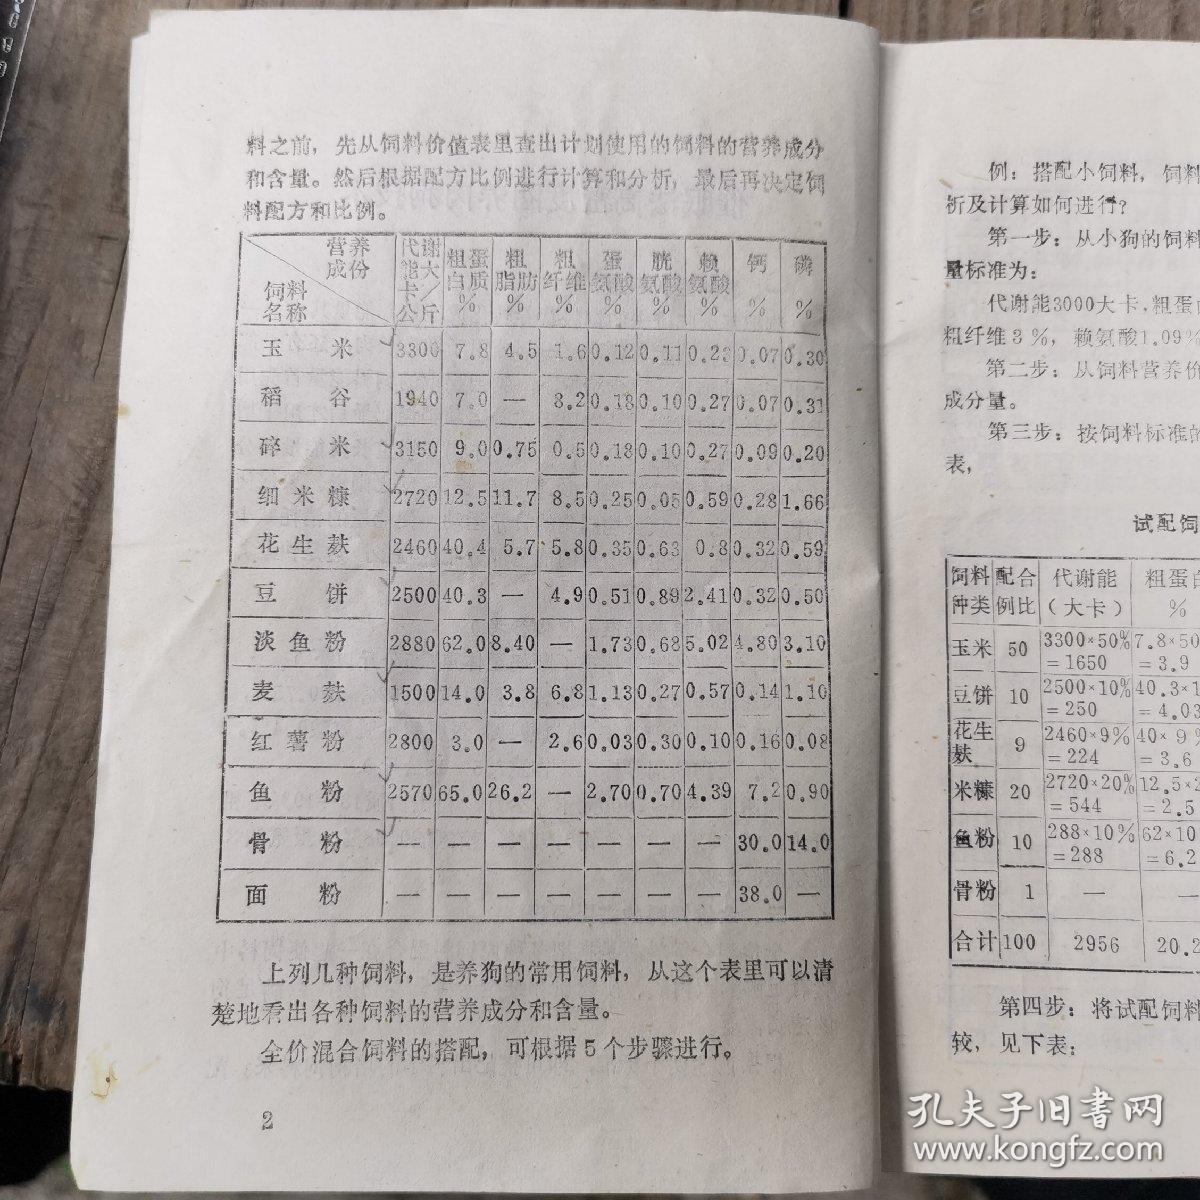 料之前，先从饲料价值表里查出计划使用的饲料的营养成分
和含量。然后根据配方比例进行计算和分析，最后再决定饲
料配方和比例。
营养成份 饲料名称 代谢能大卡／公斤 粗蛋白质% 粗脂肪% 粗纤维% 蛋氨酸% 胱氨酸% 赖氨酸% 钙% 磷%
玉米 3300 7.8 4.5 1.6 0.12 0.11 0.23 0.07 0.30
稻谷 1940 7.0 — 8.2 0.18 0.10 0.27 0.07 0.31
碎米 3150 9.0 0.75 0.5 0.18 0.10 0.27 0.09 0.20
细米糠 2720 12.5 11.7 8.5 0.25 0.05 0.59 0.28 1.66
花生麸 2460 40.4 5.7 5.8 0.35 0.63 0.8 0.32 0.59
豆饼 2500 40.3 — 4.9 0.51 0.89 2.41 0.32 0.50
淡鱼粉 2880 62.0 8.40 — 1.73 0.68 5.02 4.80 3.10
麦麸 1500 14.0 3.8 6.8 1.13 0.27 0.57 0.14 1.10
红薯粉 2800 3.0 — 2.6 0.03 0.30 0.10 0.16 0.08
鱼粉 2570 65.0 26.2 — 2.70 0.70 4.39 7.2 0.90
骨粉 — — — — — — — 30.0 14.0
面粉 — — — — — — — 38.0 —
上列几种饲料，是养狗的常用饲料，从这个表里可以清
楚地看出各种饲料的营养成分和含量。
全价混合饲料的搭配，可根据5个步骤进行。
2
例：搭配小饲料，饲料
析及计算如何进行？
第一步：从小狗的饲料
量标准为：
代谢能3000大卡，粗蛋白
粗纤维3%，赖氨酸1.09%
第二步：从饲料营养价
成分量。
第三步：按饲料标准的
表，
试配饲
饲料种类 配合例比 代谢能（大卡） 粗蛋白%
玉米 50 3300×50%=1650 7.8×50 =3.9
豆饼 10 2500×10%=250 40.3×1 =4.03
花生麸 9 2460×9%=224 40×9% =3.6
米糠 20 2720×20%=544 12.5×2 =2.5
鱼粉 10 288×10%=288 62×10 =6.2
骨粉 1 — —
合计 100 2956 20.2
第四步：将试配饲料
较，见下表：
孔夫子旧书网
www.kongfz.com